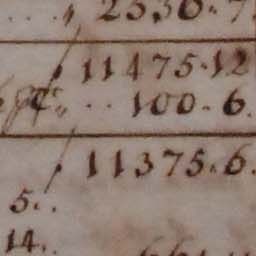 2530.7
11475.12
100.6.
11375.6.
5.
14.